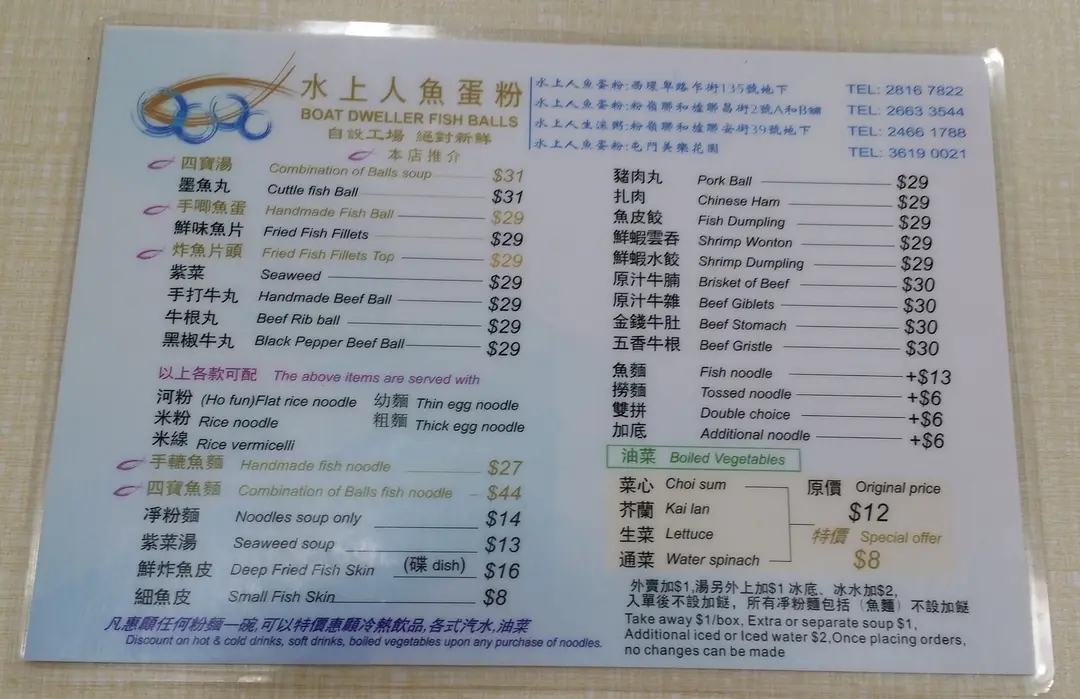 水上人魚蛋粉
BOAT DWELLER FISH BALLS
自設工場 絕對新鮮
本店推介
水上人魚蛋粉:西環卑路乍街135號地下 TEL: 2816 7822
水上人魚蛋粉:粉嶺聯和墟聯昌街2號A和B舖 TEL: 2663 3544
水上人生滾粥:粉嶺聯和墟聯安街39號地下 TEL: 2466 1788
水上人魚蛋粉:屯門美樂花園 TEL: 3619 0021
四寶湯 Combination of Balls soup $31
墨魚丸 Cuttle fish Ball $31
手唧魚蛋 Handmade Fish Ball $29
鮮味魚片 Fried Fish Fillets $29
炸魚片頭 Fried Fish Fillets Top $29
紫菜 Seaweed $29
手打牛丸 Handmade Beef Ball $29
牛根丸 Beef Rib ball $29
黑椒牛丸 Black Pepper Beef Ball $29
以上各款可配 The above items are served with
河粉 (Ho fun)Flat rice noodle 幼麵 Thin egg noodle
米粉 Rice noodle 粗麵 Thick egg noodle
米線 Rice vermicelli
手轆魚麵 Handmade fish noodle $27
四寶魚麵 Combination of Balls fish noodle $44
凈粉麵 Noodles soup only $14
紫菜湯 Seaweed soup $13
鮮炸魚皮 Deep Fried Fish Skin (碟 dish) $16
細魚皮 Small Fish Skin $8
凡惠顧任何粉麵一碗,可以特價惠顧冷熱飲品,各式汽水,油菜
Discount on hot & cold drinks, soft drinks, boiled vegetables upon any purchase of noodles.
豬肉丸 Pork Ball $29
扎肉 Chinese Ham $29
魚皮餃 Fish Dumpling $29
鮮蝦雲吞 Shrimp Wonton $29
鮮蝦水餃 Shrimp Dumpling $29
原汁牛腩 Brisket of Beef $30
原汁牛雜 Beef Giblets $30
金錢牛肚 Beef Stomach $30
五香牛根 Beef Gristle $30
魚麵 Fish noodle +$13
撈麵 Tossed noodle +$6
雙拼 Double choice +$6
加底 Additional noodle +$6
油菜 Boiled Vegetables
菜心 Choi sum 原價 Original price
芥蘭 Kai lan $12
生菜 Lettuce 特價 Special offer
通菜 Water spinach $8
外賣加$1,湯另外上加$1 冰底、冰水加$2,
入單後不設加餸，所有凈粉麵包括（魚麵）不設加餸
Take away $1/box, Extra or separate soup $1,
Additional iced or Iced water $2,Once placing orders,
no changes can be made